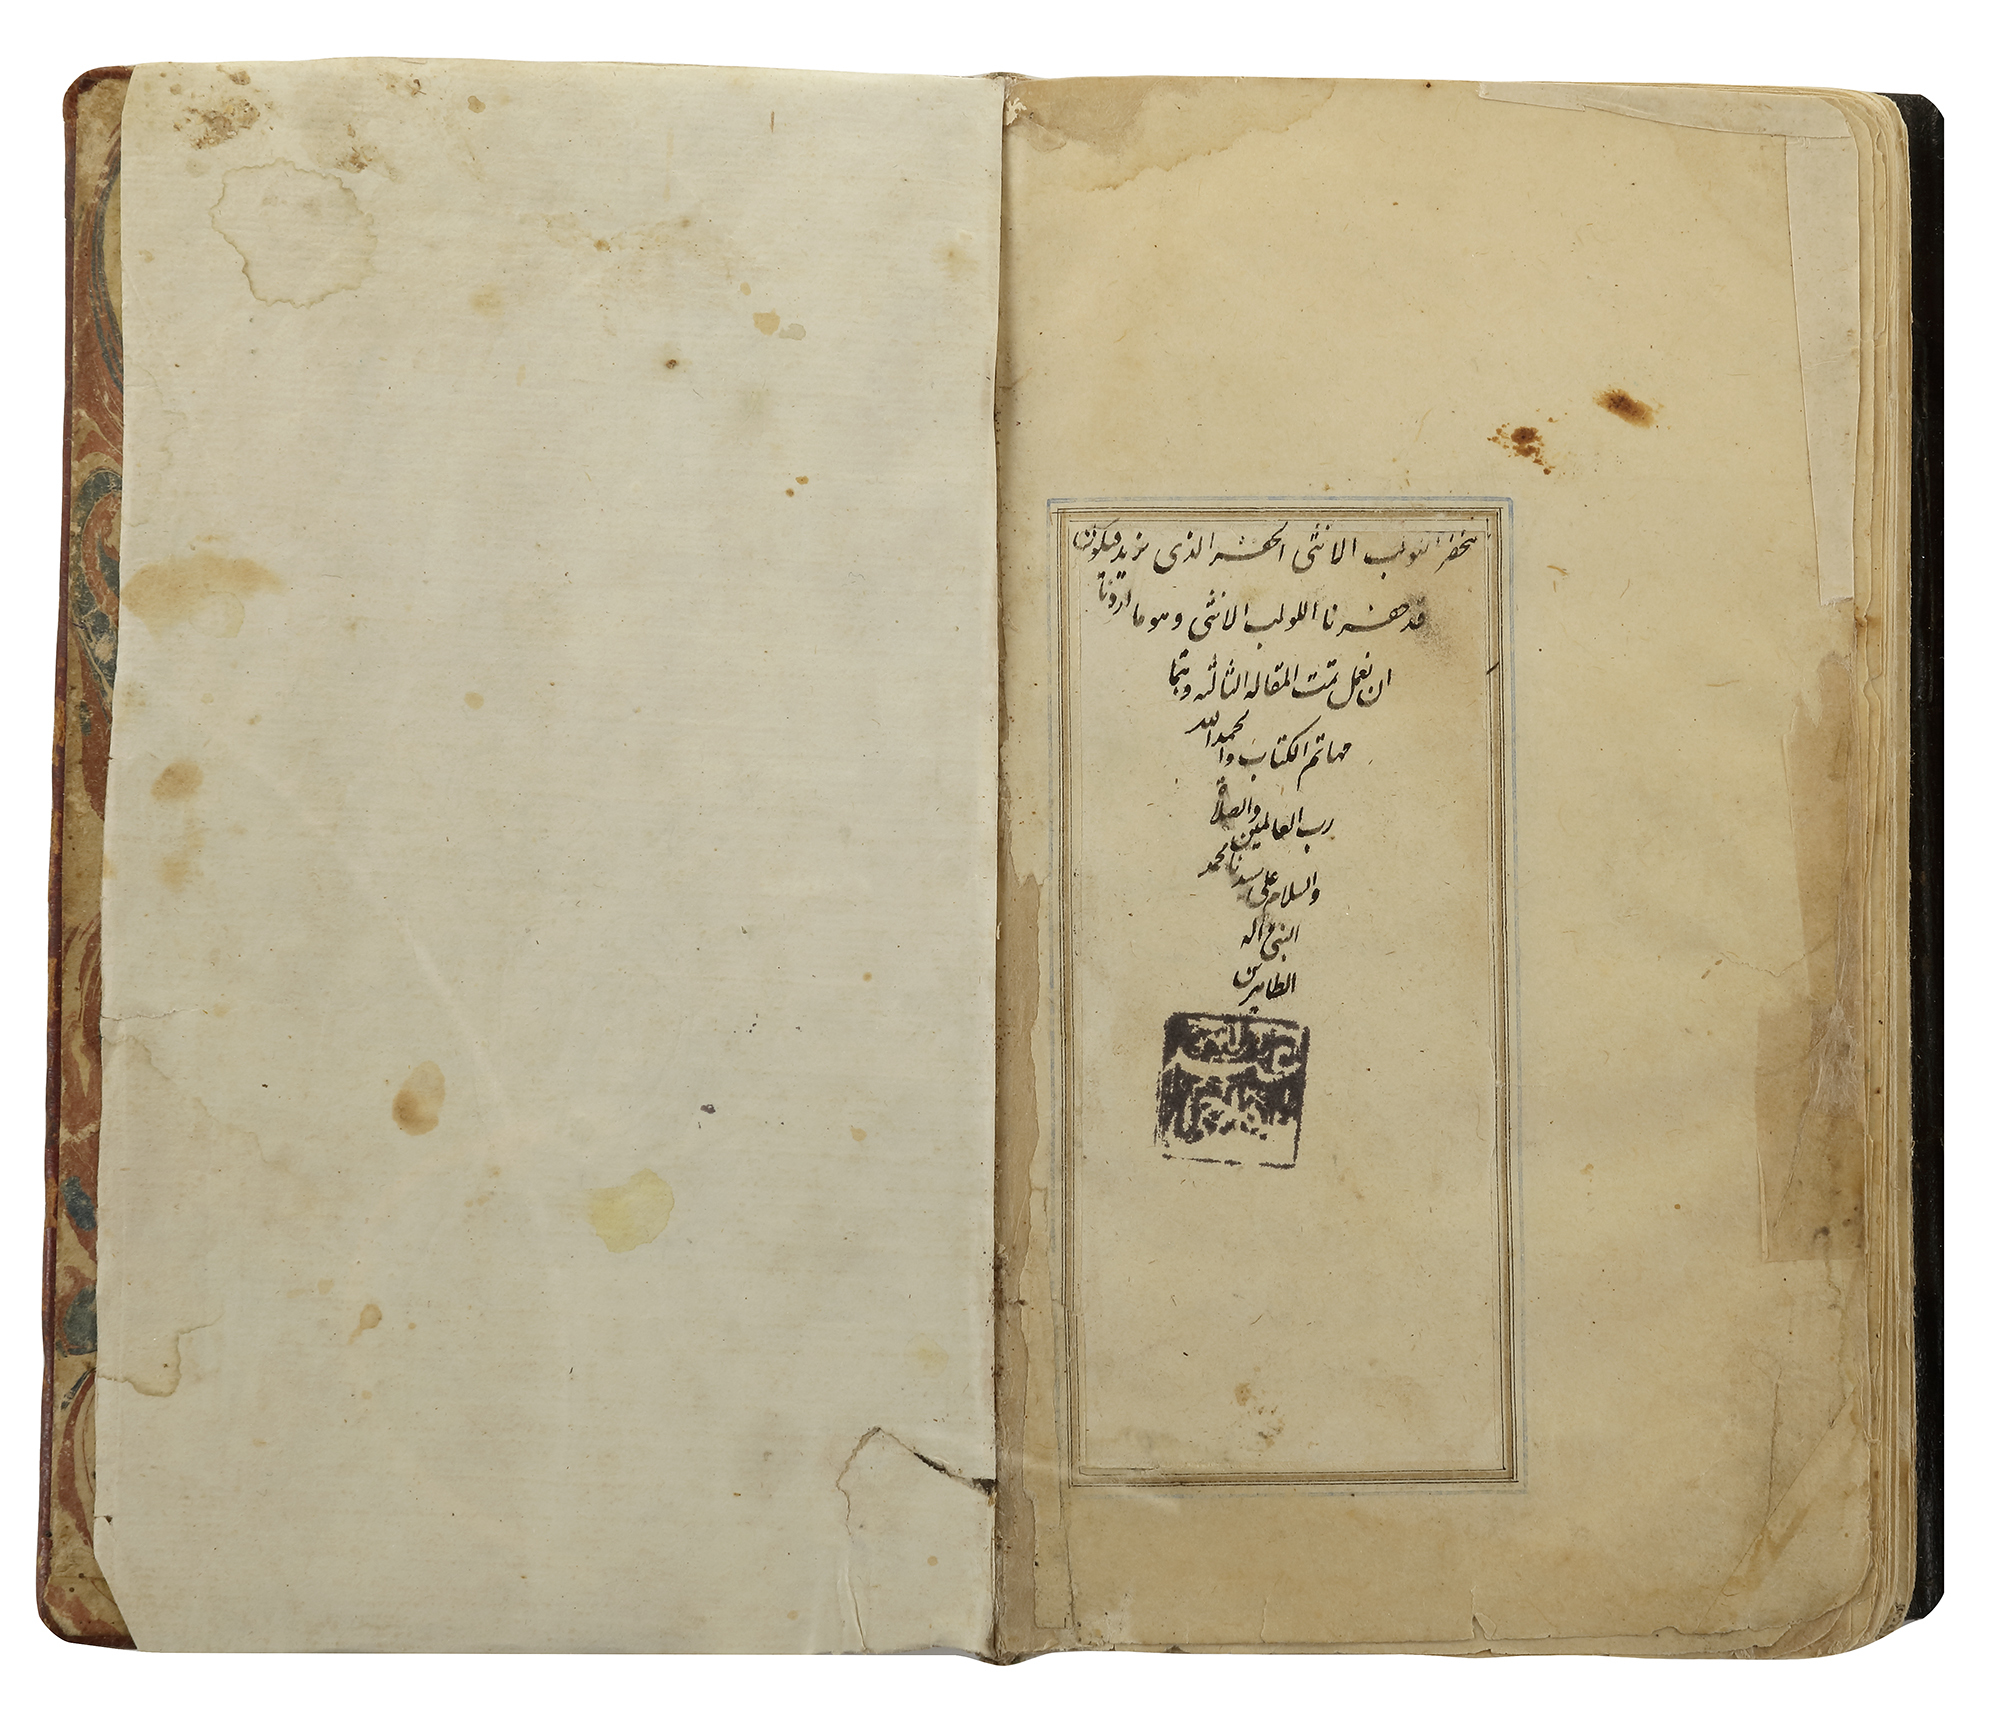 نحفر اللولب الانثى الحفر الذى نريد فيكون
قد حفرنا اللولب الانثى وهو ما اردنا
ان نعمل تمت المقاله الثالثه وبتما
مها تم الكتاب والحمد لله
رب العالمين والصلاة
والسلام على سيدنا محمد
النبى واله
الطاهرين